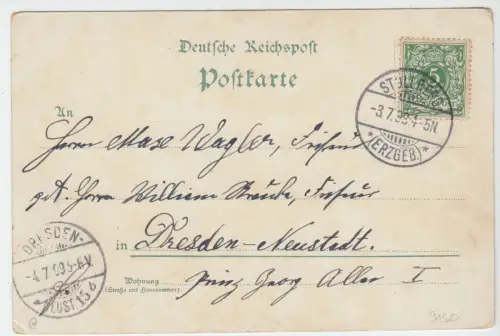 Deutsche Reichspost
Postkarte
5
STOLLBERG
-3.7.99.4-5N
*(ERZGEB.)*
An
Herrn Max Wagler, Friseur
p. Adr. Herrn William Friseur
DRESDEN-
-4.7.99.5-6V
ALTST. 15 b
in Dresden-Neustadt.
Wohnung
(Straße und Hausnummer)
Prinz Georg Allee I